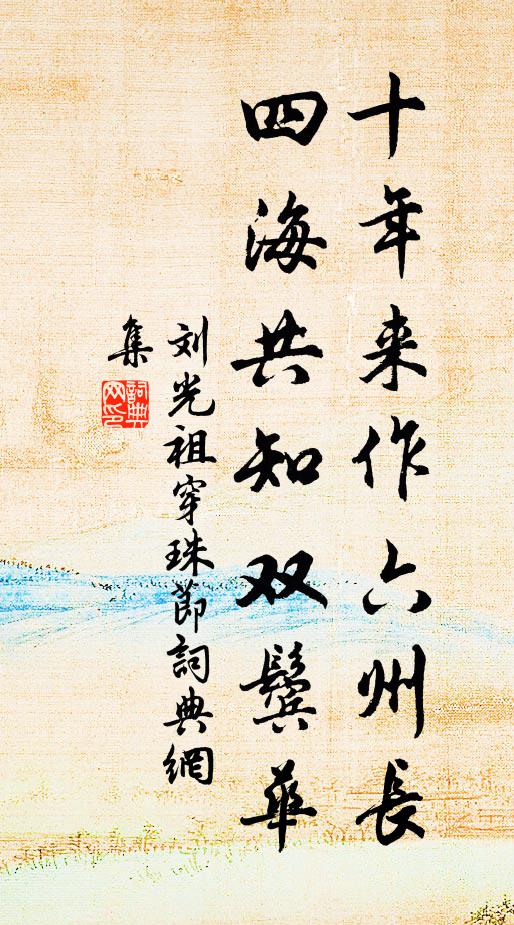 十年来作六州长
四海共知双鬓华
刘光祖穿珠莭詞典網
集
詞典
网印